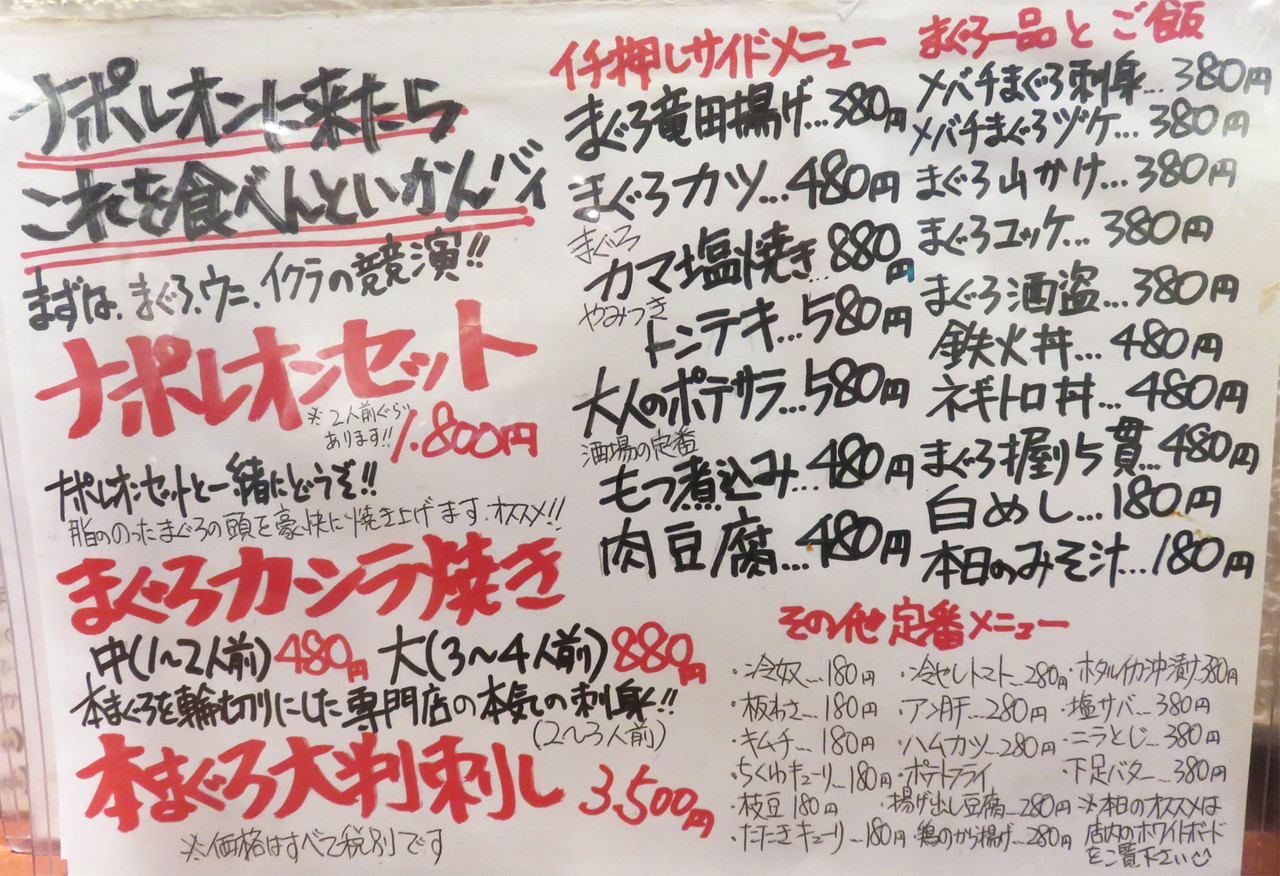 ナポレオンに来たら
これを食べんといかんバイ
まずは、まぐろ、ウニ、イクラの競演!!
ナポレオンセット
※2人前ぐらい
あります!!
1.800円
ナポレオンセットと一緒にどうぞ!!
脂ののったまぐろの頭を豪快に焼き上げます。オススメ!!
まぐろカシラ焼き
中(1〜2人前)480円 大(3〜4人前)880円
本まぐろを輪切りにした専門店の本気の刺身!!
(2〜3人前)
本まぐろ大判刺し 3,500円
※価格はすべて税別です
イチ押しサイドメニュー
まぐろ竜田揚げ…380円
まぐろカツ…480円
まぐろ
カマ塩焼き…880円
やみつき
トンテキ…580円
大人のポテサラ…580円
酒場の定番
もつ煮込み…480円
肉豆腐…480円
まぐろ一品とご飯
メバチまぐろ刺身…380円
メバチまぐろヅケ…380円
まぐろ山かけ…380円
まぐろユッケ…380円
まぐろ酒盗…380円
鉄火丼…480円
ネギトロ丼…480円
まぐろ握り5貫…480円
白めし…180円
本日のみそ汁…180円
その他定番メニュー
・冷奴…180円
・板わさ…180円
・キムチ…180円
・ちくわキューリ…180円
・枝豆180円
・たたきキューリ…180円
・冷セしトマト…280円
・アン肝…280円
・ハムカツ…280円
・ポテトフライ
・揚げ出し豆腐…280円
・鶏のから揚げ…280円
・ホタルイカ沖漬け380円
・塩サバ…380円
・ニラとじ…380円
・下足バター…380円
※本日のオススメは
店内のホワイトボード
をご覧下さい